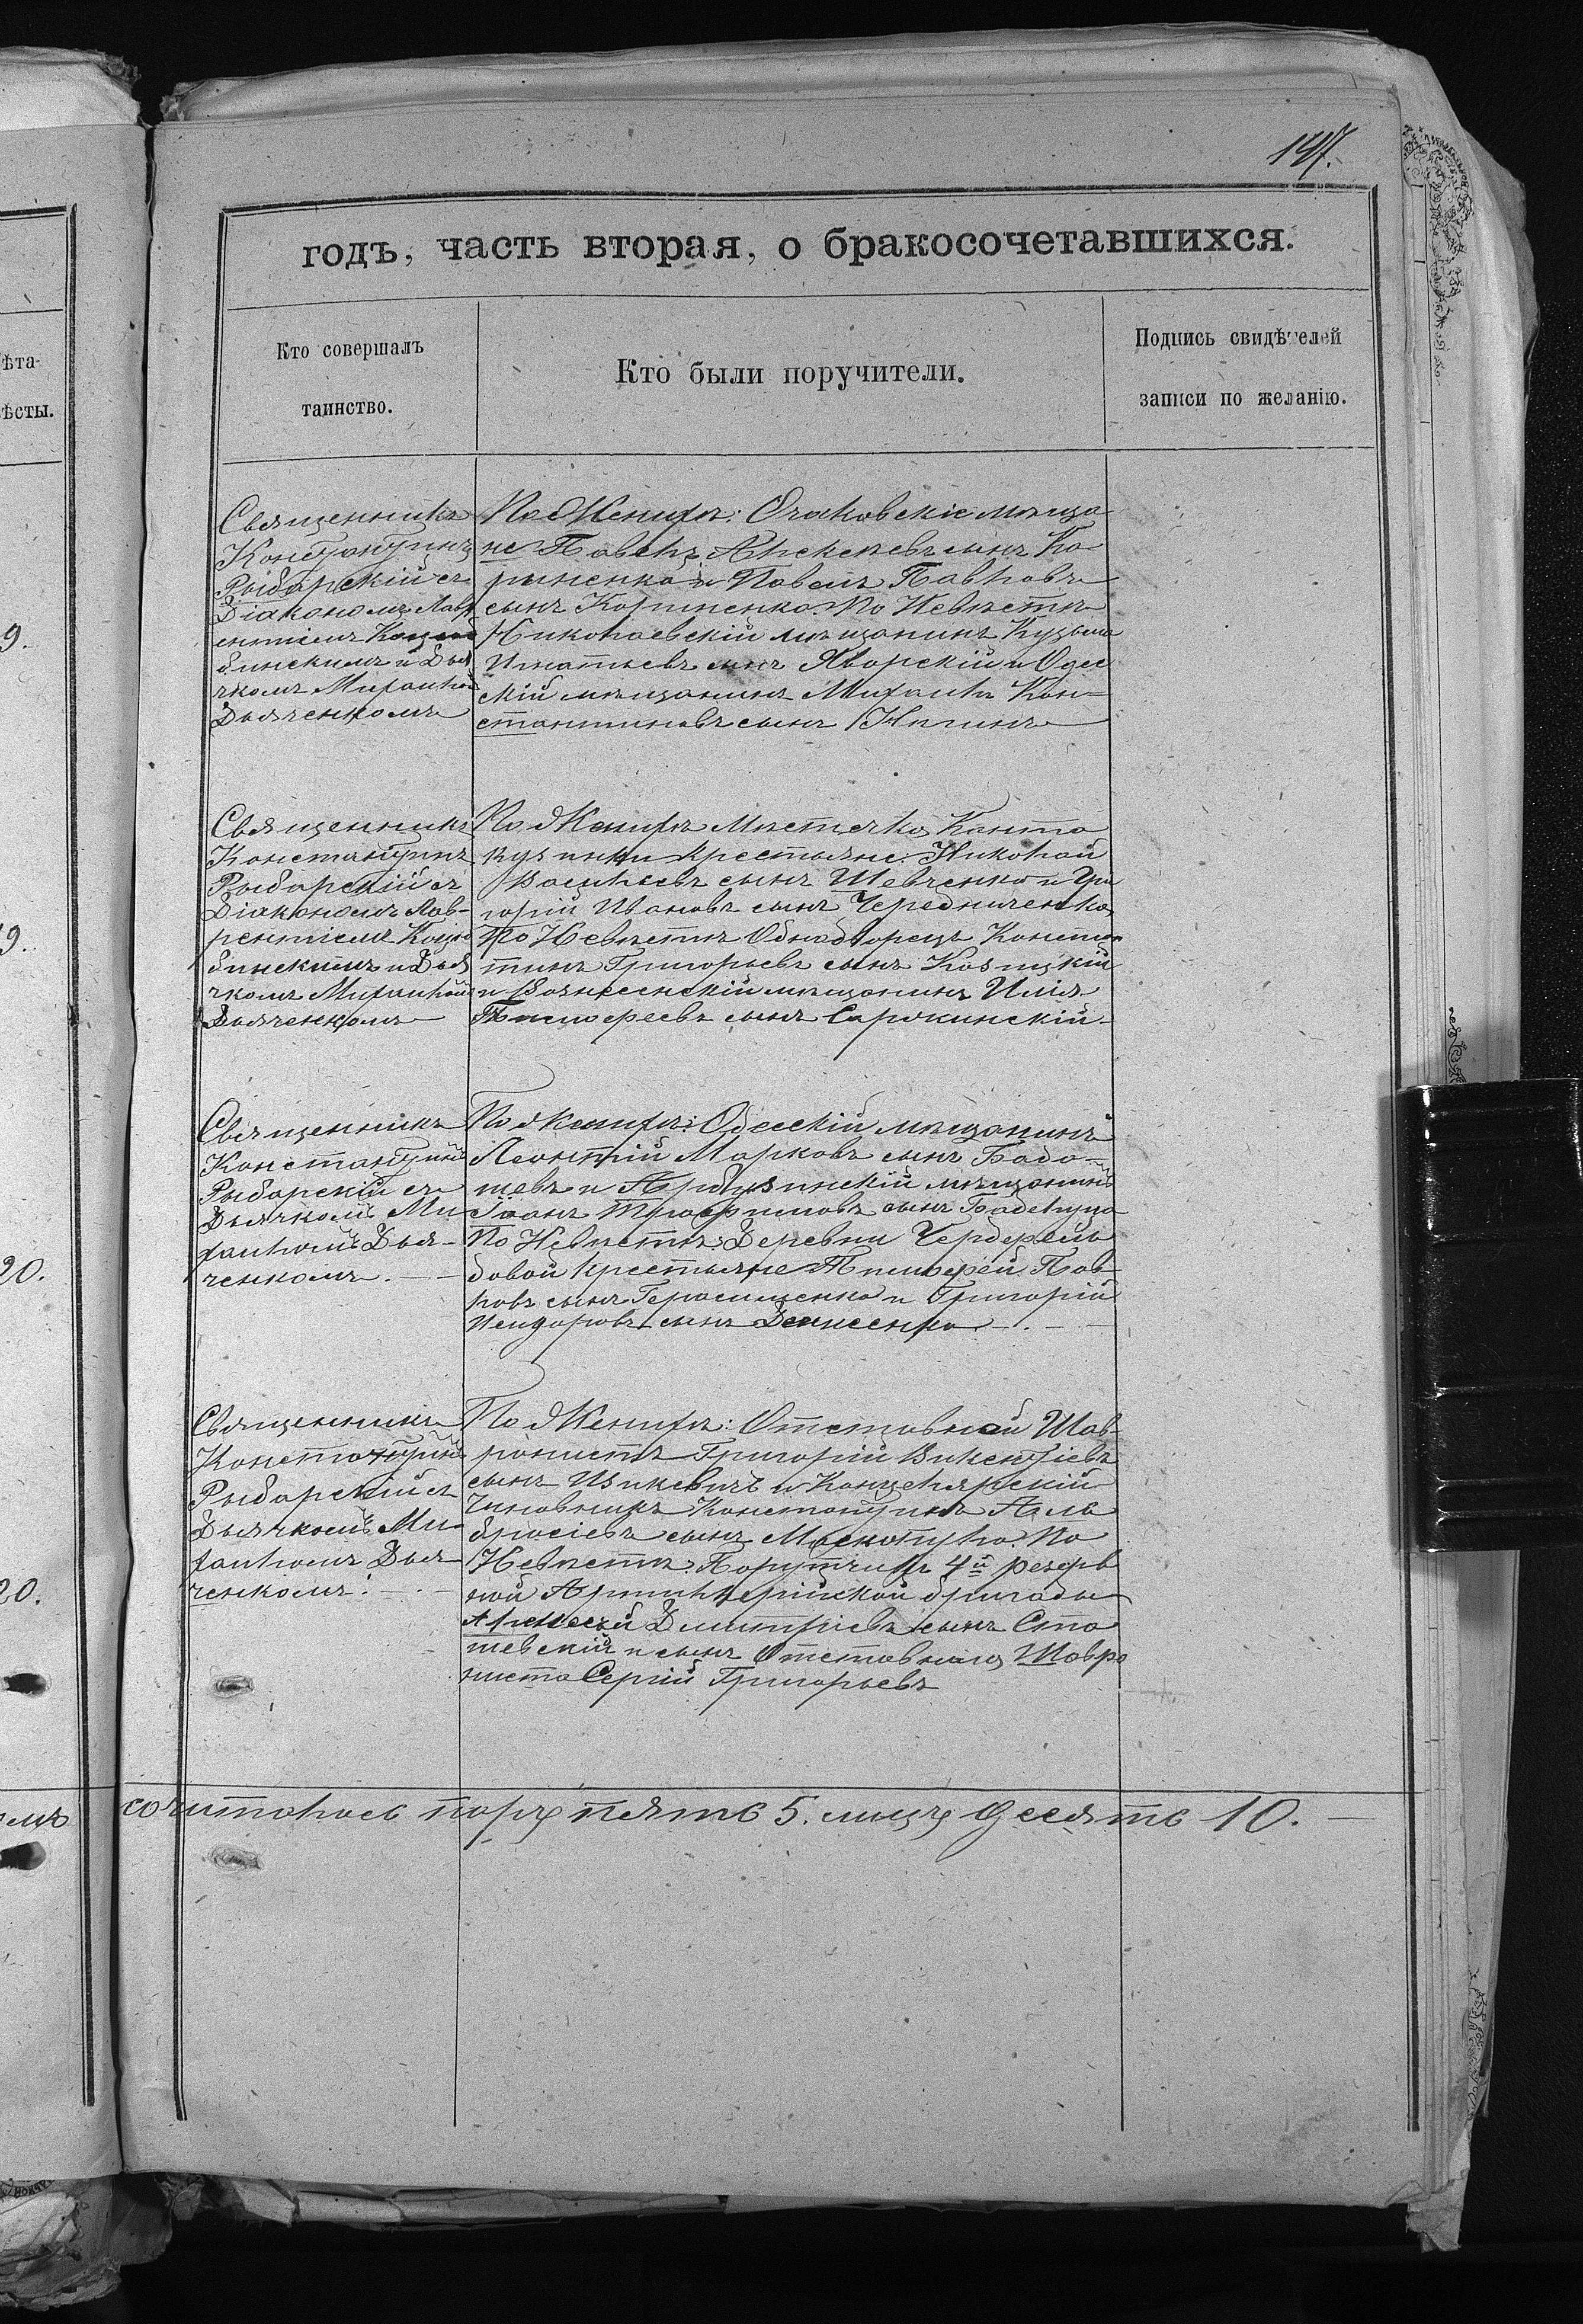 147.
годъ, часть вторая, о бракосочетавшихся.
Кто совершалъ
таинство.
Кто были поручители.
Подпись свидѣтелей
записи по желанію.
ѣта-
ѣсты.
9.
9.
20.
20.
Священникъ
Константинъ
Рыбарскій съ
Діакономъ Лавр
ентіемъ
бинскимъ и Дья
чкомъ Михаиломъ
Дьяченкомъ
По Женихѣ: Очаковскіе мѣща
не Павелъ Алексѣевъ сынъ Ко
риненко и Павелъ Павловъ
сынъ Кориненко. По Невѣстѣ
Николаевскій мѣщанинъ Кузьма
Игнатьевъ сынъ Яворскій и Одес
скій мѣщанинъ Михаилъ Кон-
стантиновъ сынъ
Священникъ
Константинъ
Рыбарскій съ
Діакономъ Лав-
рентіемъ Коцю
бинскимъ и Дья
чкомъ Михаиломъ
Дьяченкомъ
По Женихѣ Мѣстечка Канта
кузинки крестьяне: Николай
Васильевъ сынъ Шевченко и Гри
горій Ивановъ сынъ Чередниченко
По Невѣстѣ Однодворецъ Констан
тинъ Григорьевъ сынъ Козицкій
и Вознесенскій мѣщанинъ Илія
Тимофеевъ сынъ Сарокинскій
Священникъ
Константинъ
Рыбарскій съ
Дьячкомъ Ми-
хаиломъ Дья-
ченкомъ.
По Женихѣ: Одесскій мѣщанинъ
Леонтій Марковъ сынъ Бада-
шевъ и Арбузинскій мѣщанинъ
Іоанъ Трофимовъ сынъ
По Невѣстѣ: Деревни
бовой крестьяне Тимофей Пав
ловъ сынъ Герасименко и Григорій
Исидоровъ сынъ Денисенко
Священникъ
Константинъ
Рыбарскій съ
Дьячкомъ Ми-
хаиломъ Дья
ченкомъ.
По Женихѣ: Отставной Шав-
ронистъ Григорій Викентіевъ
сынъ Ицкевичъ и Канцелярскій
Чиновникъ Константинъ Ам
бросіевъ сынъ По
Невѣстѣ: Поручикъ 4й резерв
ной Артиллерійской бригады
Алексѣй Димитріевъ сынъ Ста
шевскій и сынъ Отставнаго Шавро
ниста Сергій Григорьевъ
омъ
сочиталось паръ пять 5. лицъ десять 10.